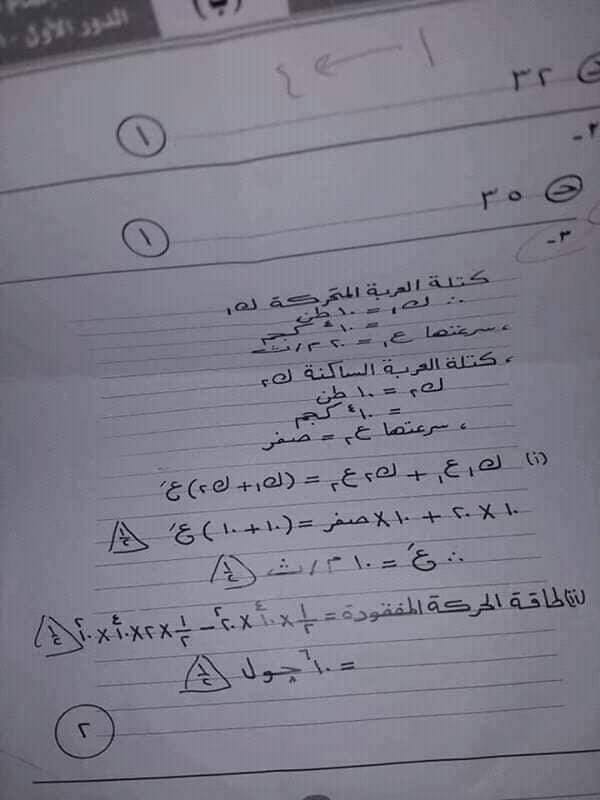 (ب)
الدور الأول -
١ ← ٤
ج ٣٢
١
٢-
ج ٣٥
١
٣-
كتلة العربة المتحركة ك١
∴ ك١ = ١٠ طن
= ١٠^٤ كجم
، سرعتها ع١ = ٢٠ م/ث
، كتلة العربة الساكنة ك٢
ك٢ = ١٠ طن
= ١٠^٤ كجم
، سرعتها ع٢ = صفر
(i) ك١ع١ + ك٢ع٢ = (ك١ + ك٢)ع َ
١٠ × ٢٠ + ١٠ × صفر = (١٠ + ١٠) ع َ ½
∴ ع َ = ١٠ م/ث ½
(ii) طاقة الحركة المفقودة = ½ × ١٠^٤ × ٢٠^٢ - ½ × ٢ × ١٠^٤ × ١٠^٢ ½
= ١٠^٦ جول ½
٢